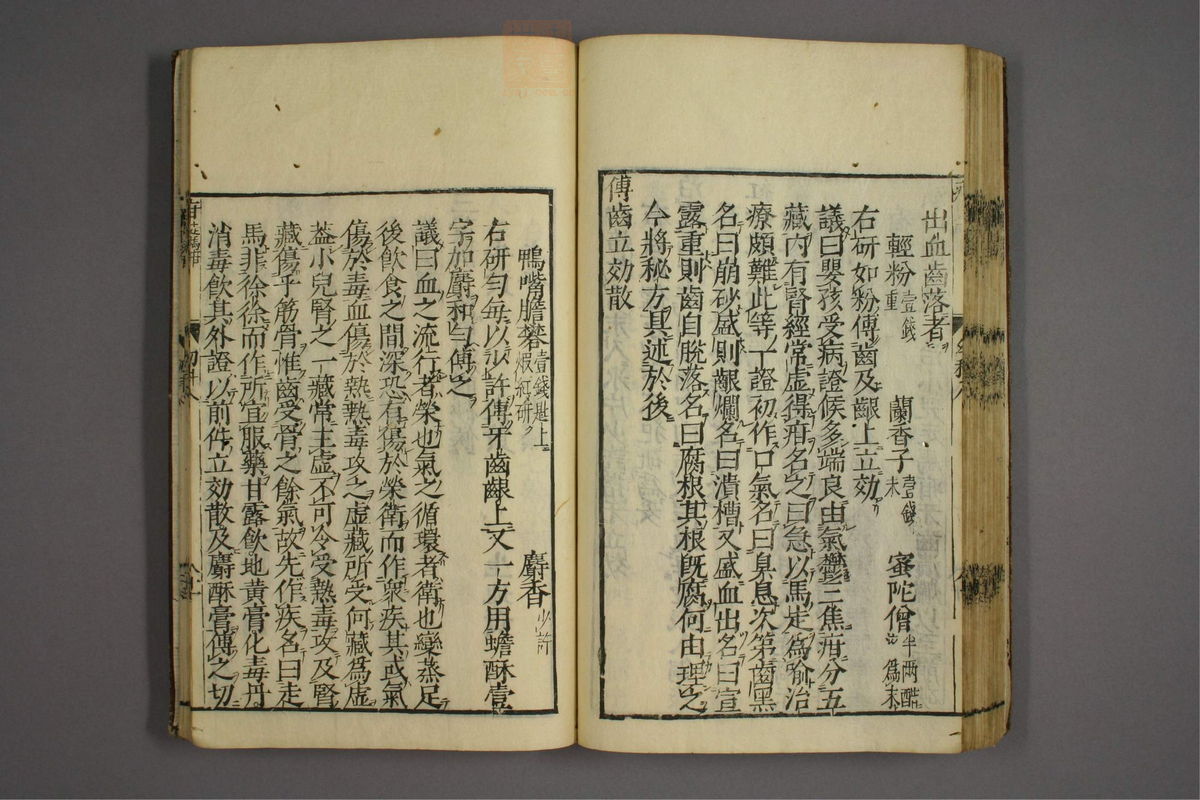 出血齒落者
輕粉壹錢重 蘭香子壹錢末 蜜陀僧半兩醋淬為末
右研如粉傅齒及齦上立効
議曰嬰孩受病證候多端良由氣鬱三焦疳分五
藏內有腎經常虛得疳名之曰急以馬走為喻治
療頗難此等一證初作口氣名曰臭息次第齒黑
名曰崩砂盛則齦爛名曰潰槽又盛血出名曰宣
露重則齒自脫落名曰腐根其根既腐何由理之
今將秘方具述於後
傅齒立効散
鴨嘴膽礬壹錢匙上煅紅研 麝香少許
右研勻每以少許傅牙齒齦上又一方用蟾酥壹
字加麝和勻傅之
議曰血之流行者榮也氣之循環者衛也變蒸足
後飲食之間深恐有傷於榮衛而作衆疾其或氣
傷於毒血傷於熱熱毒攻之虛藏所受何藏為虛
蓋小兒腎之一藏常主虛不可令受熱毒攻及腎
藏傷乎筋骨惟齒受骨之餘氣故先作疾名曰走
馬非徐徐而作所宜服藥甘露飲地黃膏化毒丹
消毒飲其外證以前件立効散及麝酥膏傅之切